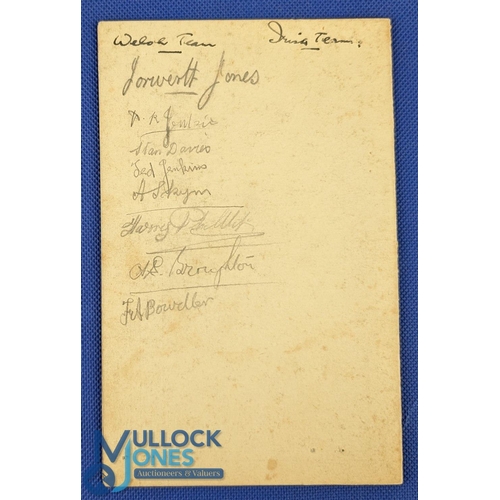 Welsh Team Irish Team.
Iorwerth Jones
Jenkins
Stan Davies
Ted Jenkins
A Skym
Harry Phillips
A.S. Broughton
F A Bowdler
MULLOCK
JONES
Auctioneers & Valuers